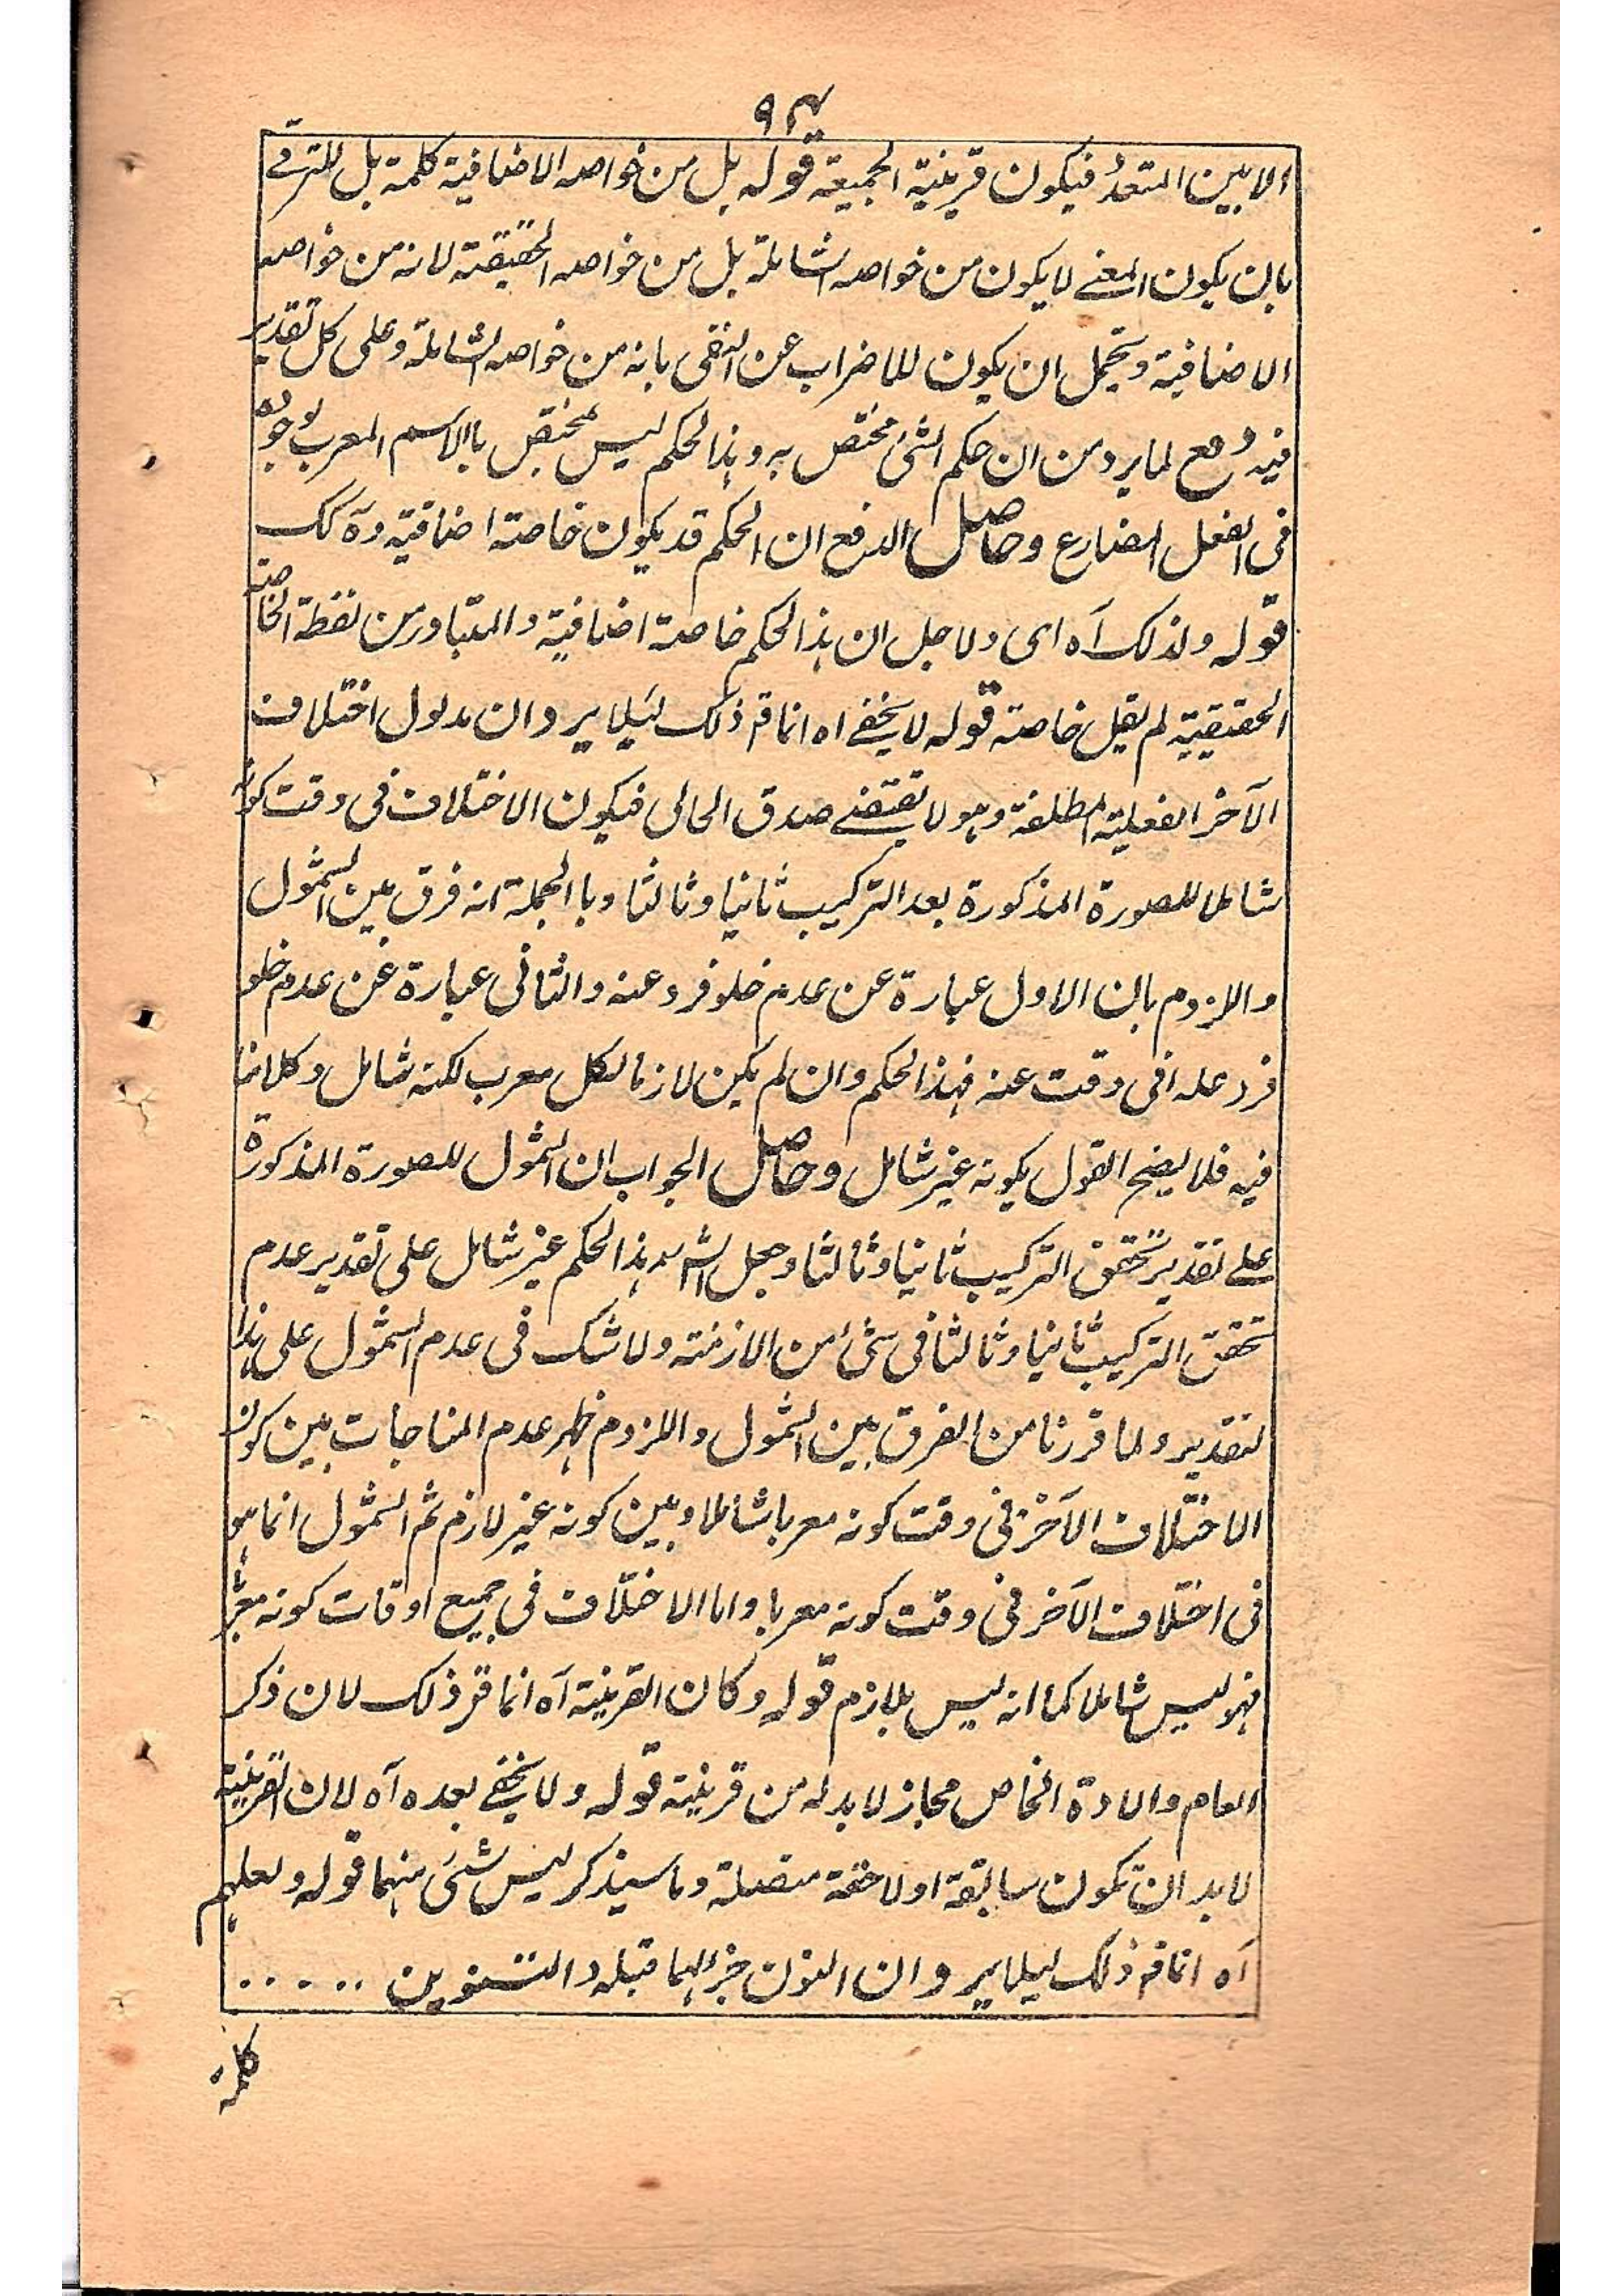 ٩٤
الا بين المتعدد فيكون قرينية الجمعية قوله بل من خواصه الاضافية كلمة بل للترقے
بان يكون المعنے لا يكون من خواصه الشاملة بل من خواصه الحقيقة لانه من خواصه
الاضافية ويحتمل ان يكون للاضراب عن النفى بانه من خواصه الشاملة وعلى كل تقدير
فيه دفع لما يرد من ان حكم الشئ مختص به وہذا لحكم ليس بمختص بالاسم المعرب لوجوده
فى الفعل المضارع وحاصل الدفع ان الحكم قد يكون خاصة اضافية
قوله ولذلك آه اى ولاجل ان ہذا لحكم خاصة اضافية والمتبادر من لفظة الخاصة
الحقيقية لم يقل خاصته قوله لا يخفے اه انما قر ذلك ليلا يرد ان مدلول اختلاف
الآخر الفعلية المطلقة وہو لا يقتضے صدق الحالى فيكون الاختلاف فى وقت كونه
شاملا للصورة المذكورة بعد التركيب ثانيا وثالثا وبا الجملة انه فرق بين الشمول
واللزوم بان الاول عبارة عن عدم خلو فرد عنه والثانى عبارة عن عدم خلو
فرد عله افى وقت عنه فہذا لحكم وان لم يكن لازما لكل معرب لكنه شامل وكلامنا
فيه فلا يصح القول بكونه غير شامل وحاصل الجواب ان الشمول للصورة المذكورة
علے تقدير تحقق التركيب ثانيا وثالثا وجعل الشہ ہذا لحكم غير شامل على تقدير عدم
تحقق التركيب ثانيا وثالثا فى شئ من الازمنة ولا شك فى عدم الشمول على ہذا
لتقدير ولما قررنا من الفرق بين الشمول واللزوم ظہر عدم المناجات بين كون
الاختلاف الآخر فى وقت كونه معربا شاملا وبين كونه غير لازم ثم الشمول انما ہو
فى اختلاف الآخر فى وقت كونه معربا واما الاختلاف فى جميع اوقات كونه معربا
فہو ليس شاملا كما انه ليس بلازم قوله وكان القرينة آه انما قر ذلك لان ذكر
العام والادة الخاص مجاز لا بد له من قرينة قوله ولا يخفے بعده آه لان القرينة
لا بد ان تكون سابقة اولاحقة متصلة وما سيذكر ليس شئى منہما قوله ولعلہم
آه انما قر ذلك ليلا يرد ان النون جزء لہما قبله والتنوين . . . . .
كلمة